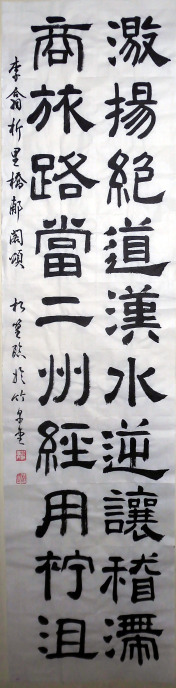 激揚絶道漢水逆讓稽滯
商旅路當二州經用柠沮
李翕析里橋郙閣頌 臨於竹